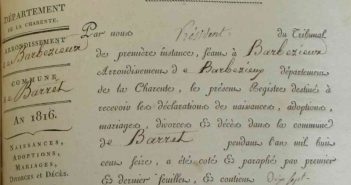 DÉPARTEMENT
DE LA CHARENTE.
ARRONDISSEMENT
de Barbezieux
COMMUNE
de Barret
AN 1816.
NAISSANCES,
ADOPTIONS,
MARIAGES,
DIVORCES ET DÉCÈS.
Par nous Président du Tribunal
de première instance, séant à Barbezieux
Arrondissement de Barbezieux département
de la Charente, le présent Registre destiné à
recevoir les déclarations de naissances, adoptions,
mariages, divorces & décès dans la commune
de Barret pendant l'an mil huit
cent seize, a été coté & paraphé par premier
& dernier feuillet, & contient dix sept